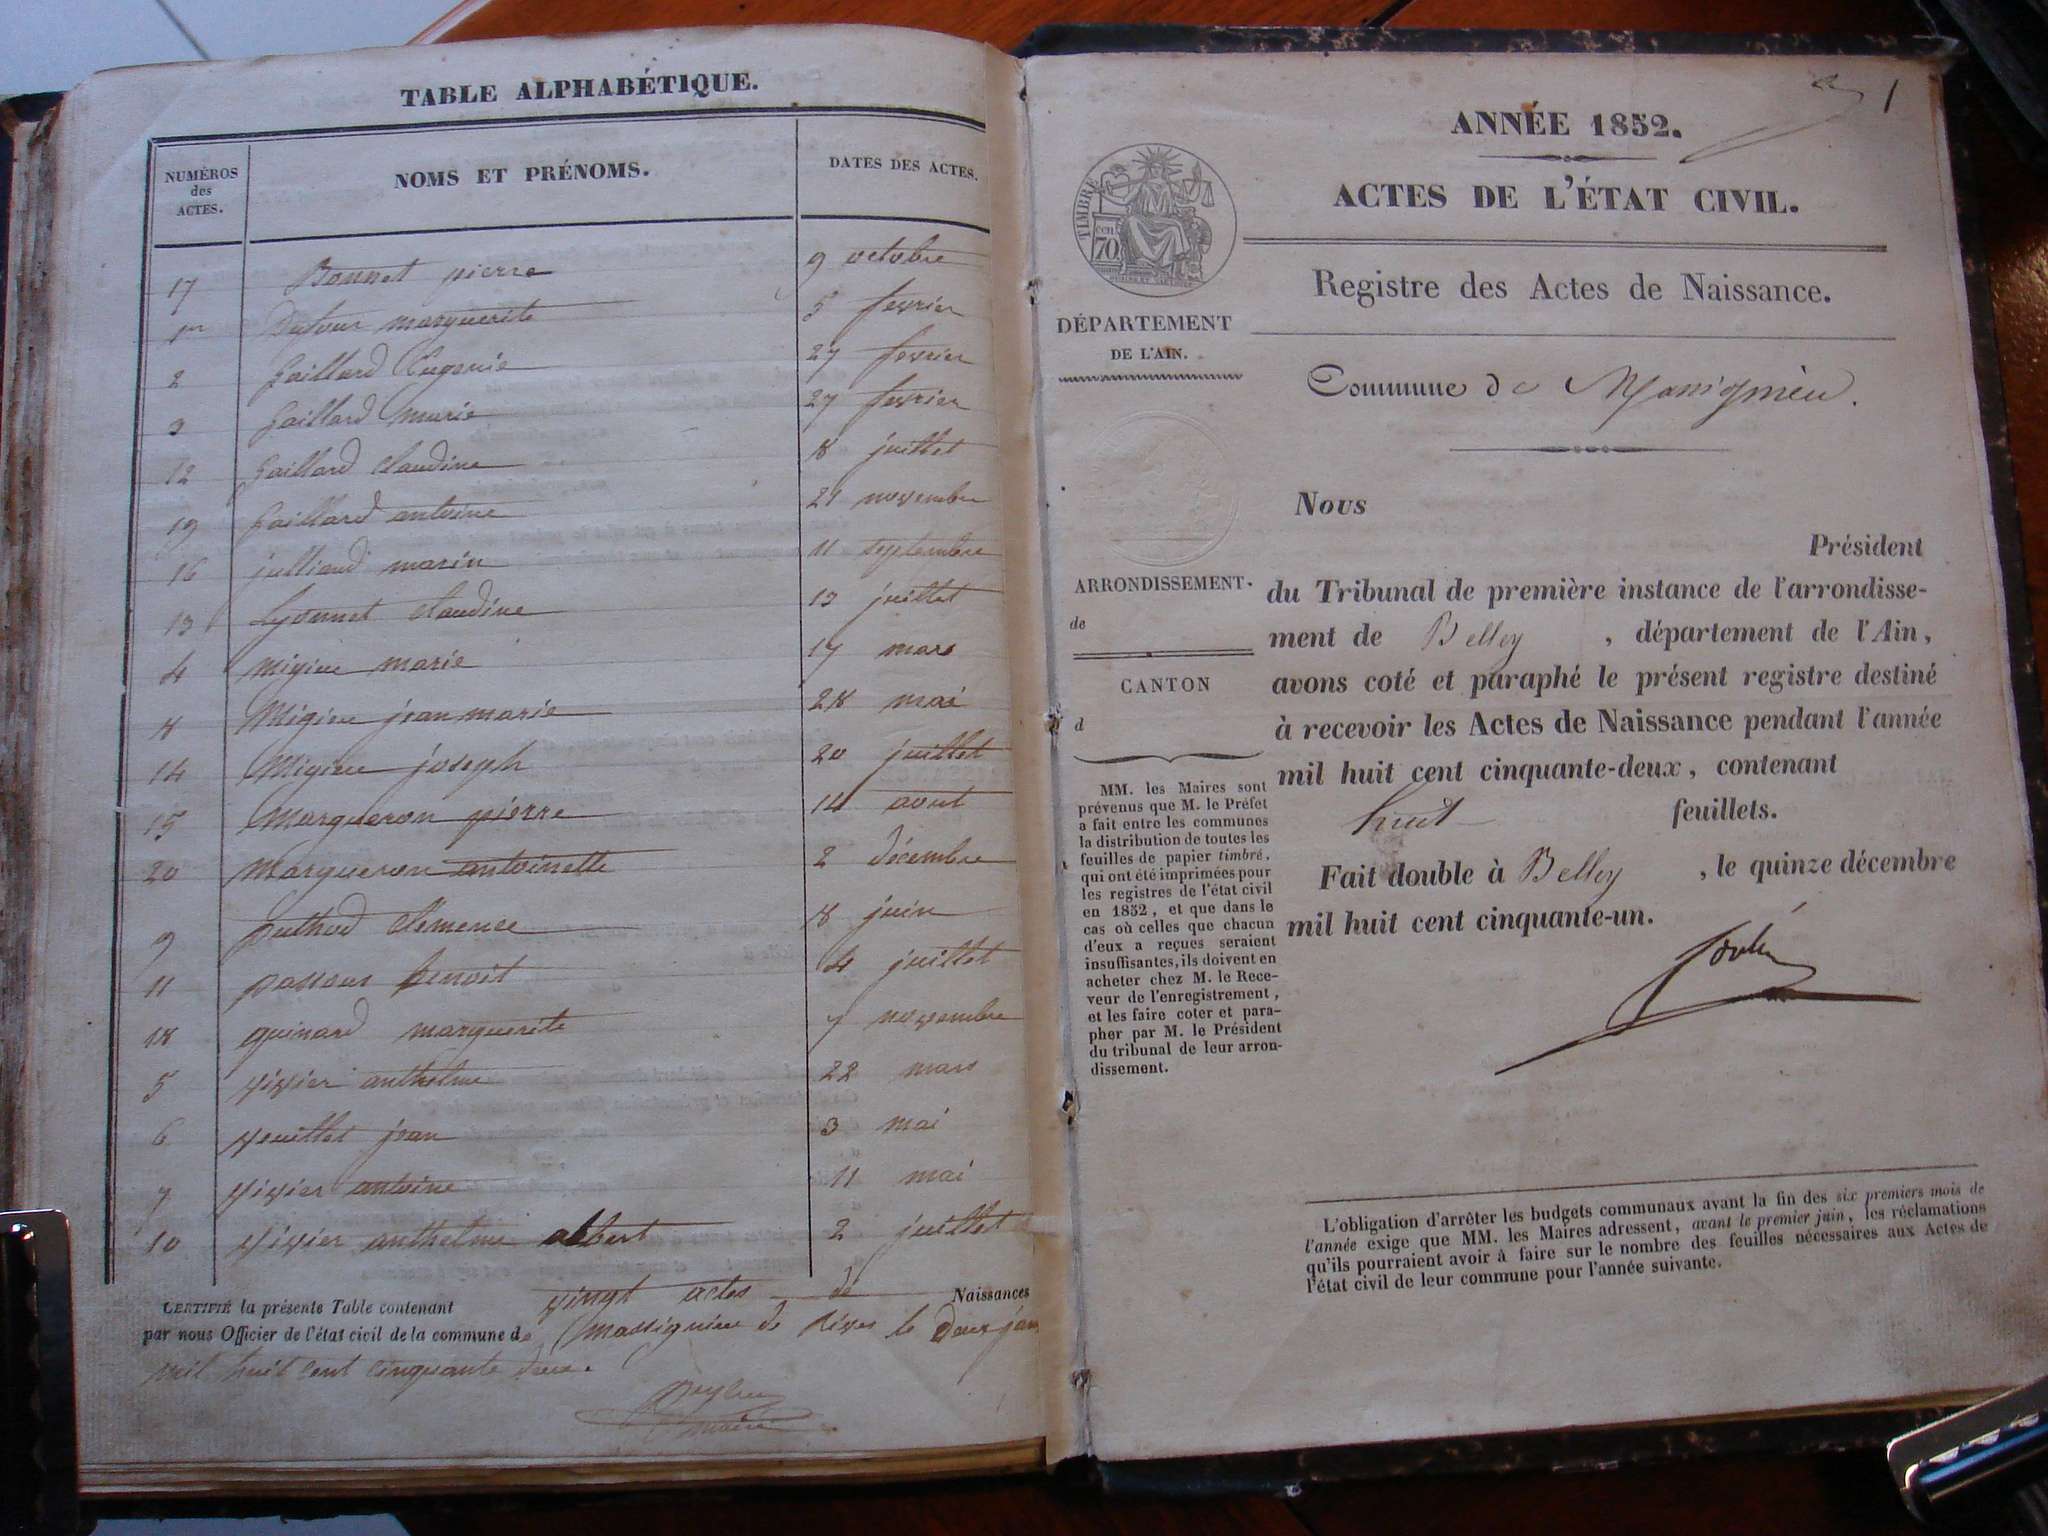 TABLE ALPHABÉTIQUE.
NUMÉROS des ACTES. NOMS ET PRÉNOMS. DATES DES ACTES.
17 Bonnet pierre 9 octobre
1er Dufour marguerite 5 fevrier
2 Gaillard Eugenie 27 fevrier
3 Gaillard marie 27 fevrier
12 Gaillard claudine 8 juillet
19 Gaillard antoine 21 novembre
16 julliand marin 11 septembre
13 Lyonnet Claudine 13 juillet
4 Migieu marie 17 mars
8 Migieu jean marie 28 mai
14 Migieu joseph 20 juillet
15 Margueron pierre 14 aout
20 Margueron antoinette 2 décembre
9 puthod Clemence 18 juin
11 benoit 4 juillet
18 quinard marguerite 7 novembre
5 vivier anthelme 22 mars
6 veuillet jean 3 mai
7 vivier antoine 11 mai
10 vivier anthelme albert 2 juillet
CERTIFIÉ la présente Table contenant vingt actes de Naissances
par nous Officier de l'état civil de la commune de Massignieu de Rives le deux jan
mil huit cent cinquante deux.
maire
1
ANNÉE 1852.
ACTES DE L'ÉTAT CIVIL.
TIMBRE
70 CEN
Registre des Actes de Naissance.
DÉPARTEMENT
DE L'AIN.
Commune de Massignieu.
ARRONDISSEMENT.
de
CANTON
d
MM. les Maires sont
prévenus que M. le Préfet
a fait entre les communes
la distribution de toutes les
feuilles de papier timbré,
qui ont été imprimées pour
les registres de l'état civil
en 1852, et que dans le
cas où celles que chacun
d'eux a reçues seraient
insuffisantes, ils doivent en
acheter chez M. le Rece-
veur de l'enregistrement,
et les faire coter et para-
pher par M. le Président
du tribunal de leur arron-
dissement.
Nous
Président
du Tribunal de première instance de l'arrondisse-
ment de Belley, département de l'Ain,
avons coté et paraphé le présent registre destiné
à recevoir les Actes de Naissance pendant l'année
mil huit cent cinquante-deux, contenant
huit feuillets.
Fait double à Belley, le quinze décembre
mil huit cent cinquante-un.
L'obligation d'arrêter les budgets communaux avant la fin des six premiers mois de
l'année exige que MM. les Maires adressent, avant le premier juin, les réclamations
qu'ils pourraient avoir à faire sur le nombre des feuilles nécessaires aux Actes de
l'état civil de leur commune pour l'année suivante.